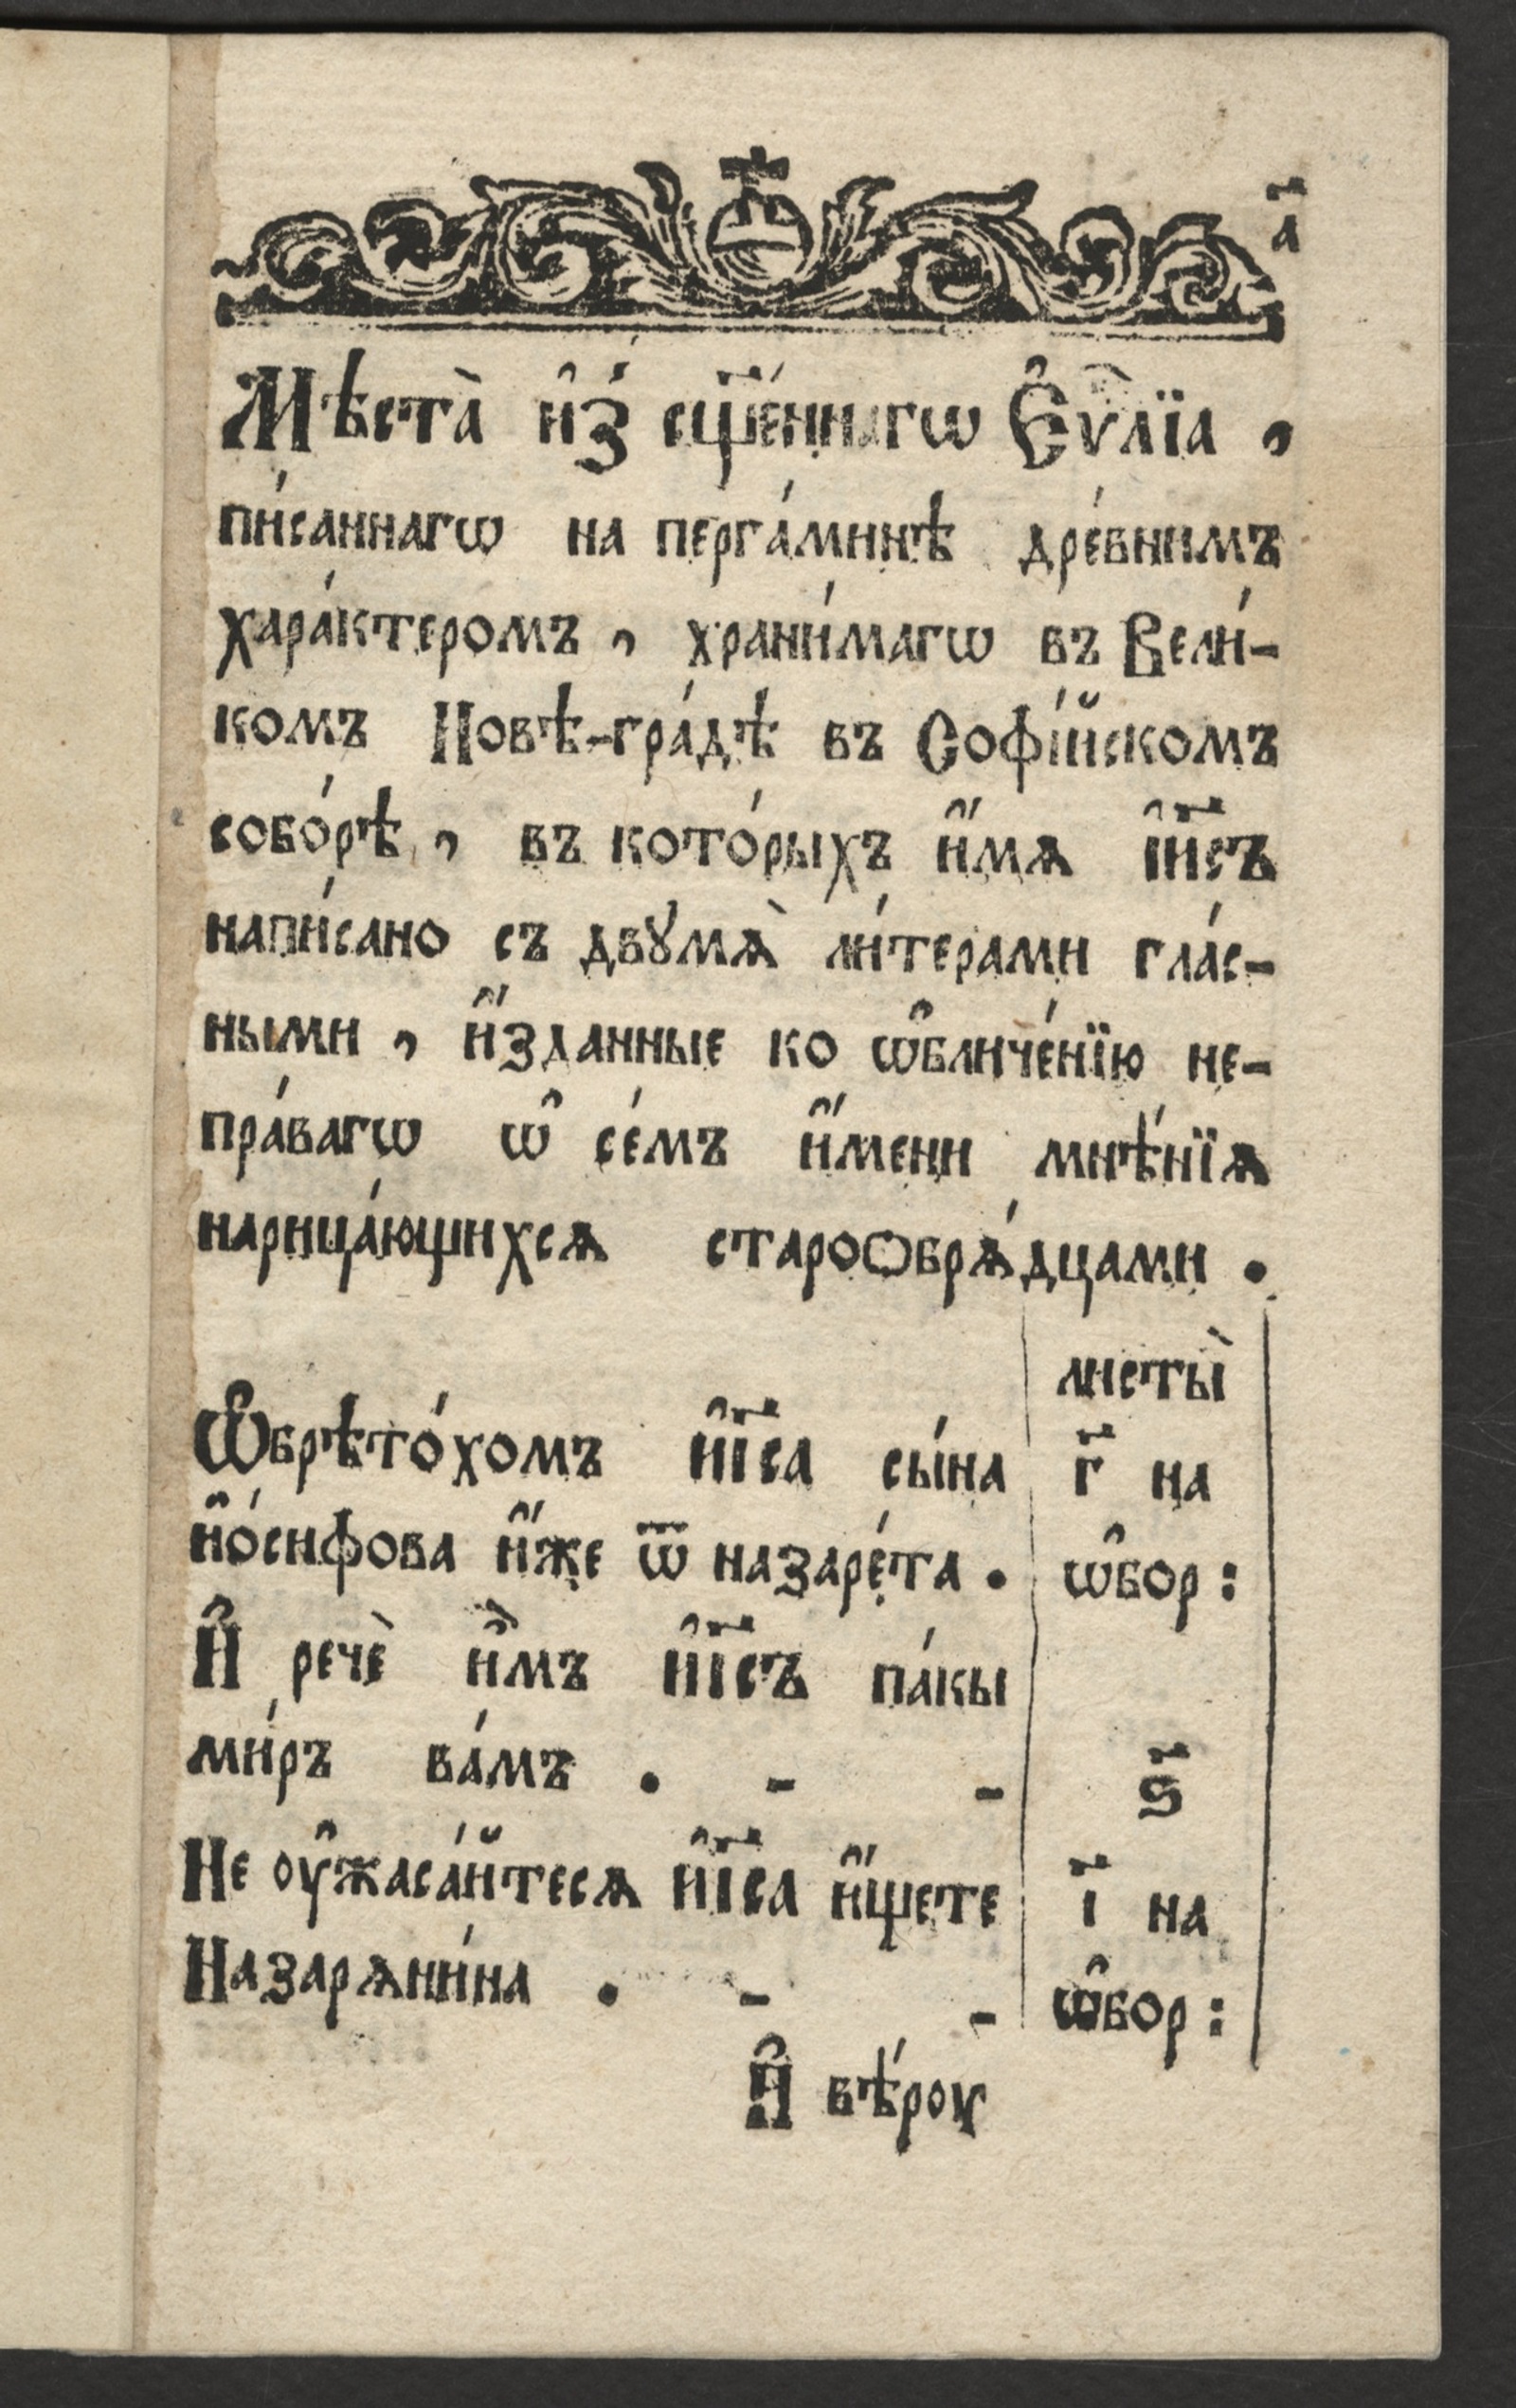 а҃
Мѣста̀ и҆з̾ сщ҃е́ннагѡ Є҆ѵⷢ҇лїа ,
пи́саннагѡ на перга́минѣ дре́внимъ
хара́ктеромъ , храни́магѡ въ Вели́-
комъ Новѣ-гра́дѣ въ Софі́йскомъ
собо́рѣ , въ кото́рыхъ и҆́мѧ і҆и҃съ
напи́сано съ двꙋмѧ̀ ли́терами гла́с-
ными , и҆́зданные ко ѡ҆бличе́нїю не-
пра́вагѡ ѡ҆ се́мъ и҆́мени мнѣ́нїѧ
нарица́ющихсѧ старообрѧ́дцами .
листы̀
Ѡ҆брѣто́хомъ и҆і҃са сы́на г҃ на
и҆о́сифова и҆́же ѿ назаре́та . ѡ҆бор :
И҆ речѐ и҆̀мъ и҆і҃съ па́кы
ми́ръ ва́мъ . - - ѕ҃
Не ѹ҆жаса́йтесѧ и҆і҃са и҆́щете і҃ на
Назарѧни́на . - - ѡ҆бор :
И҆ вѣ́рѹ